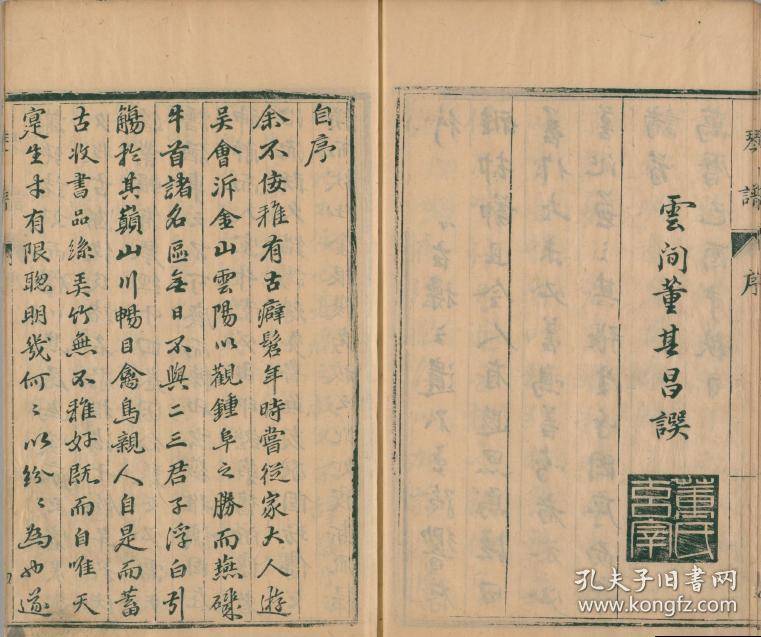 琴譜 序
雲间董其昌譔
董氏玄宰
自序
余不佞雅有古癖髫年時嘗從家大人遊
吳會泝金山雲陽以觀鍾阜之勝而燕磯
牛首諸名區無日不與二三君子浮白引
觴於其巔山川暢目禽鳥親人自是而蓄
古收書品絲弄竹無不雅好既而自唯天
寔生才有限聰明幾何〻以紛〻為也遂
孔夫子旧书网
www.kongfz.com